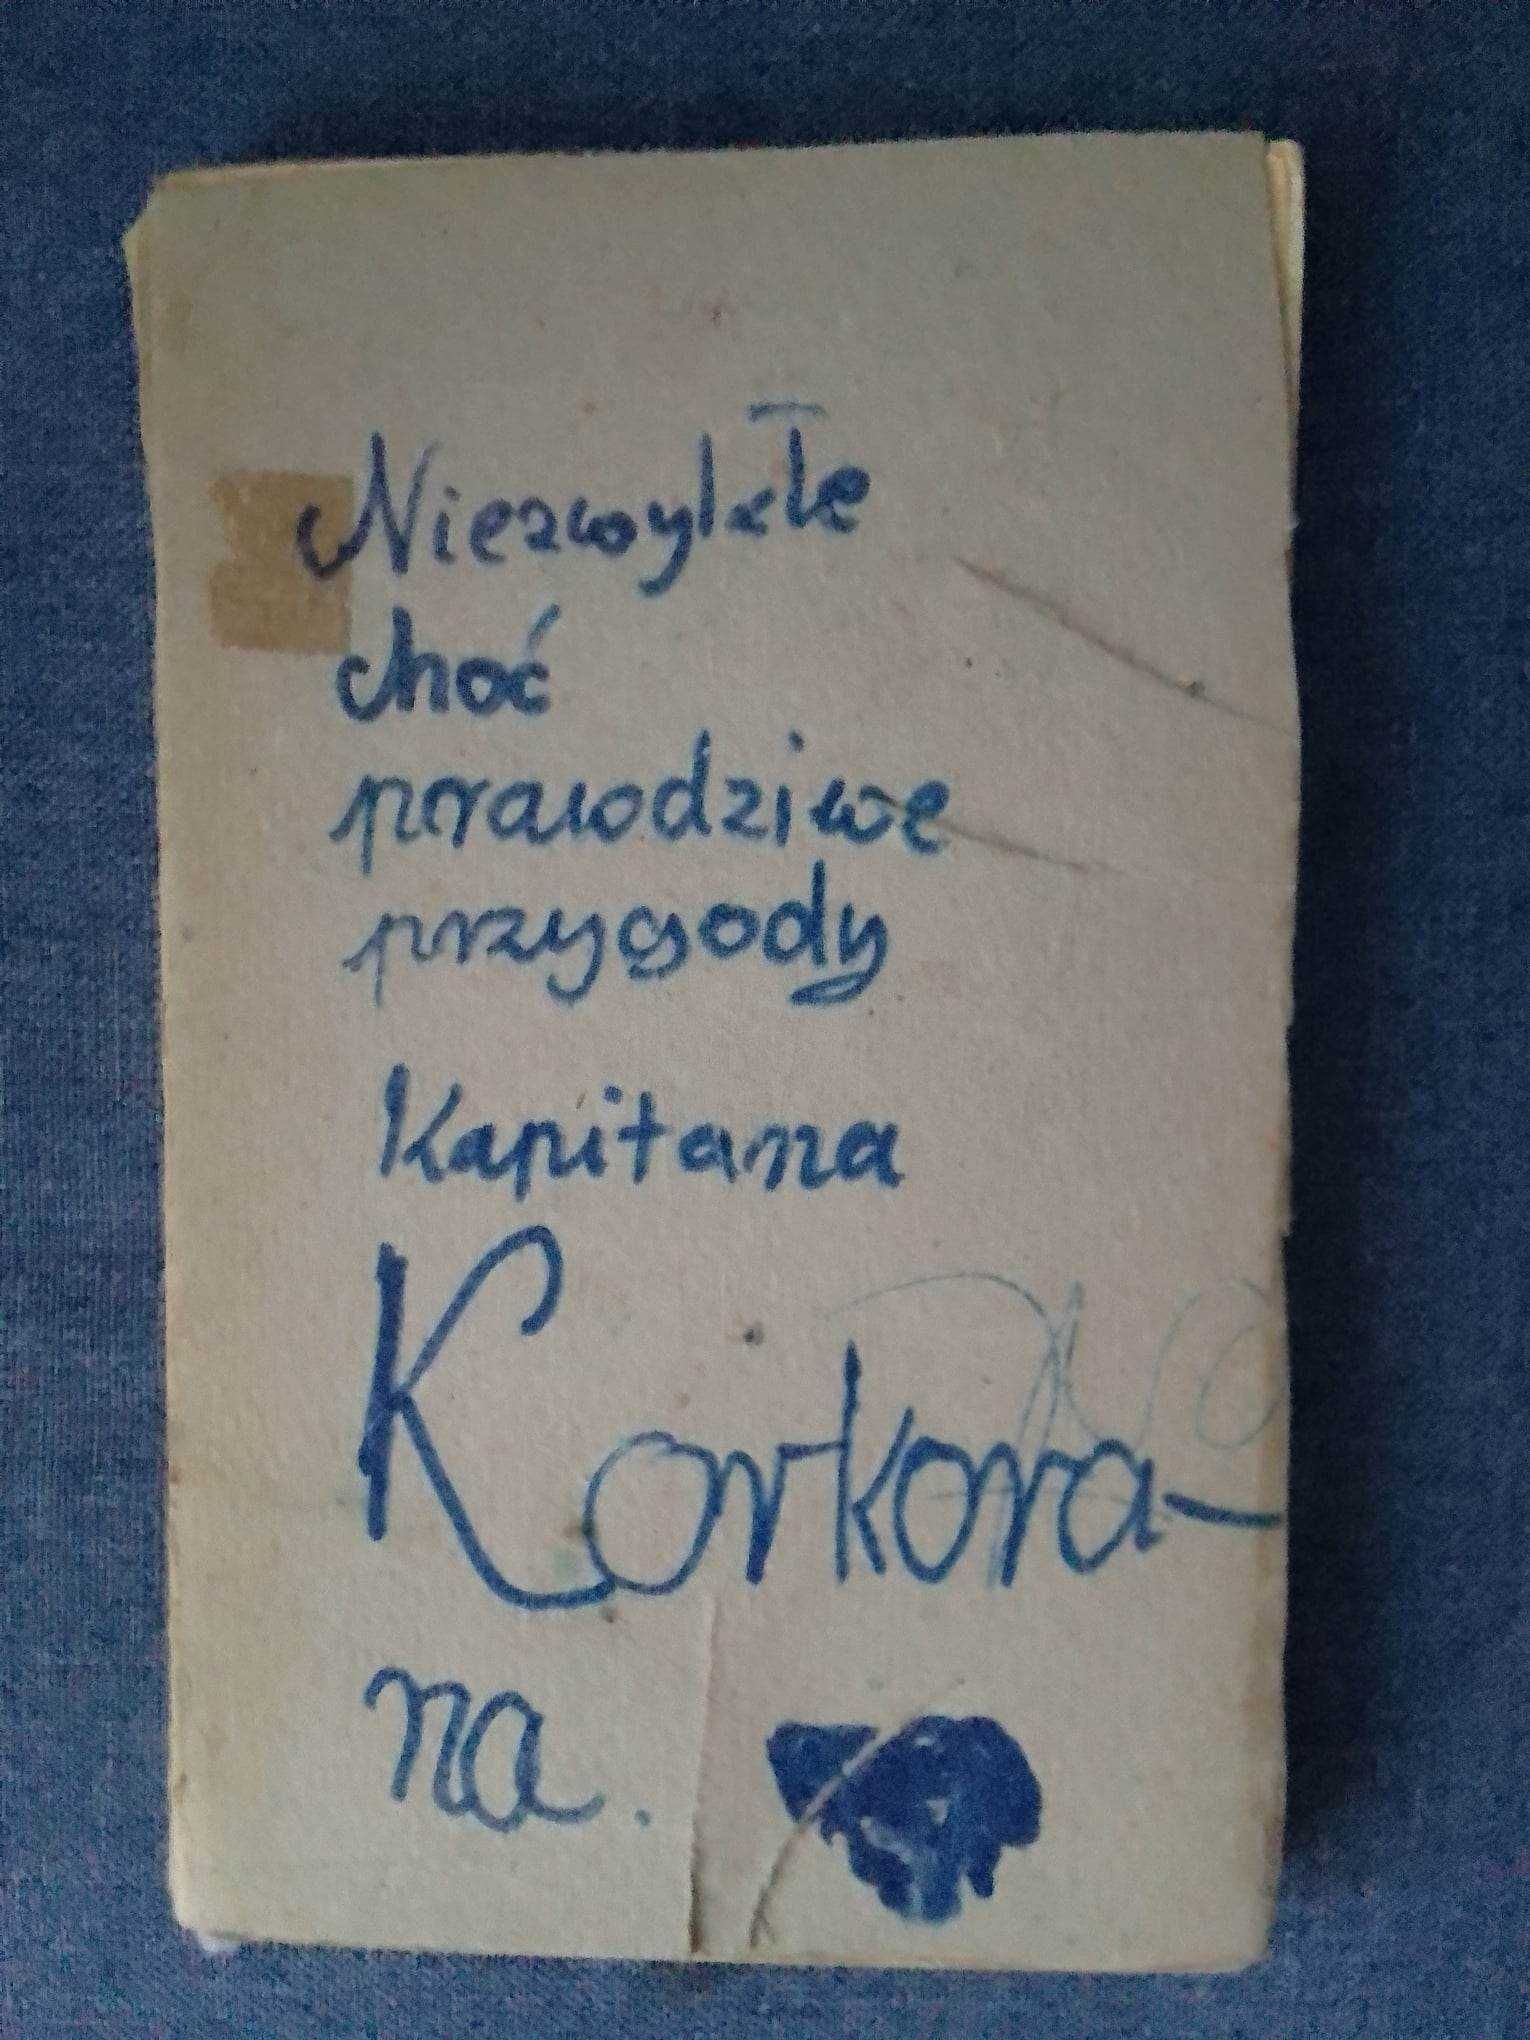 Niezwykłe
choć
prawdziwe
przygody
Kapitana
Korkora-
na.